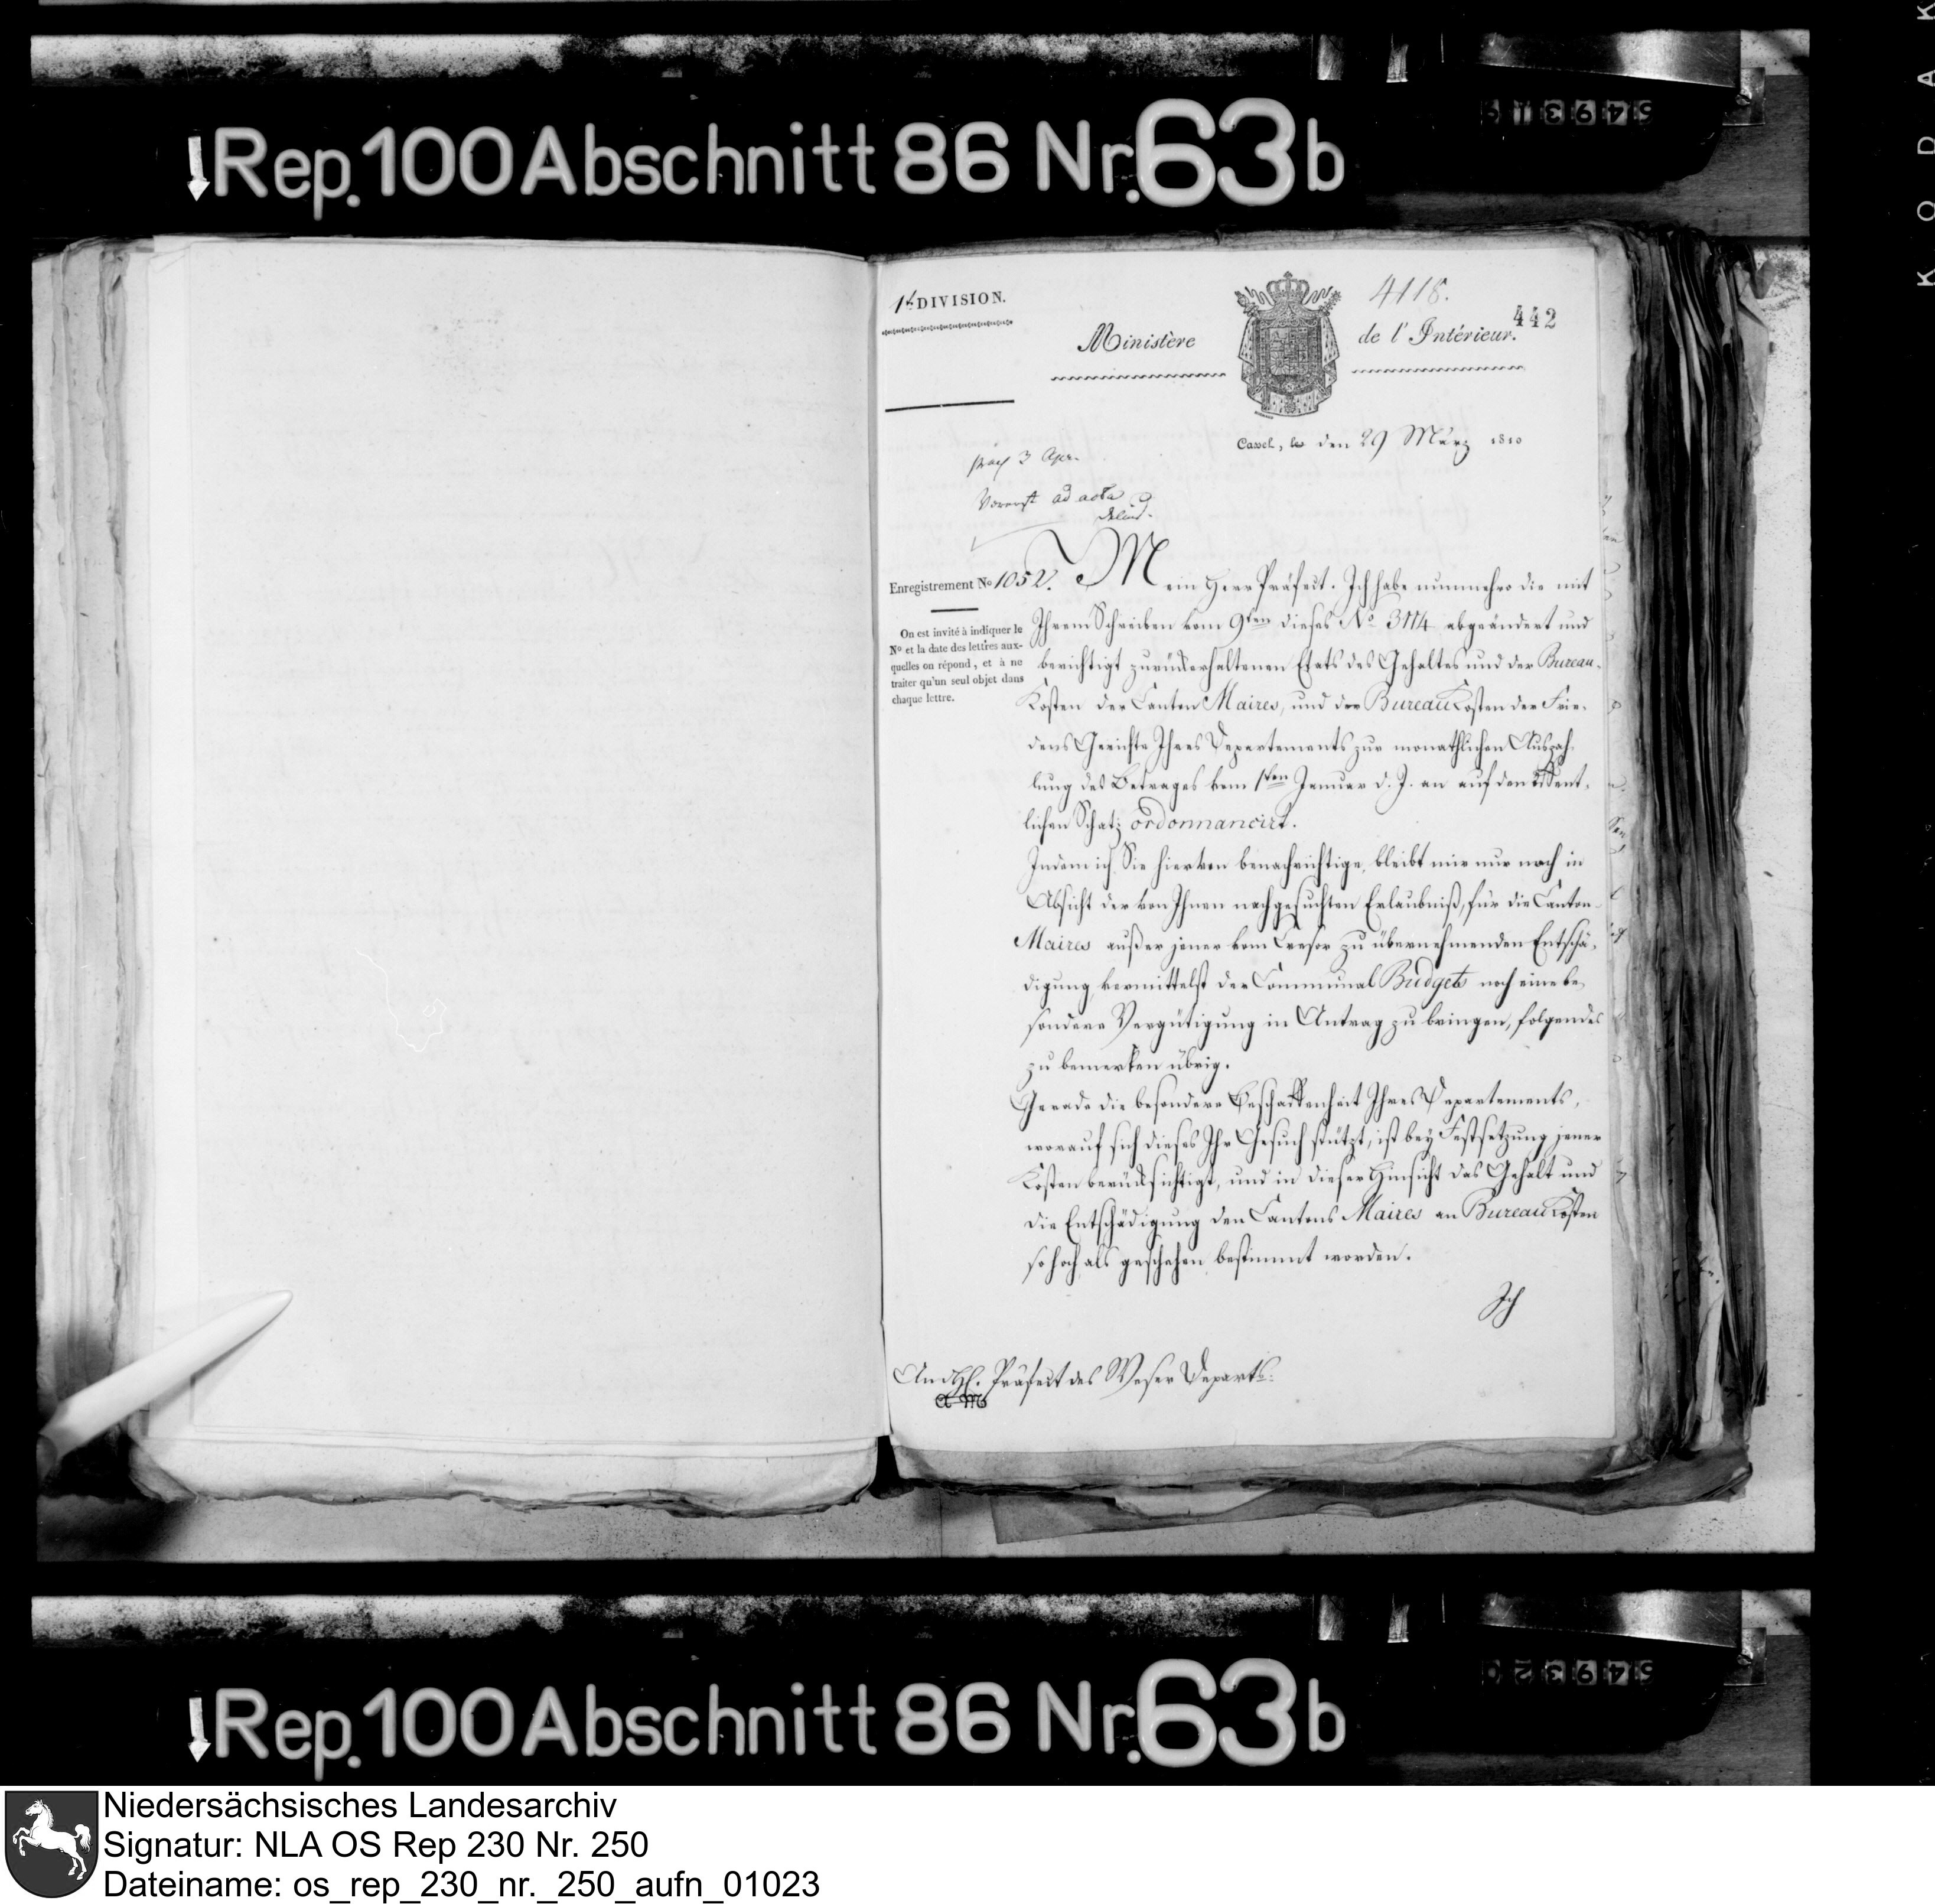 Rep. 100 Abschnitt 86 Nr. 63 b
KODAK
1te DIVISION.
4118.
442
Ministère de l'Intérieur.
Cassel, le den 29 März 1810
praes 3 Apr.
Vorerst ad acta
Enregistrement No 1052.
On est invité à indiquer le
No et la date des lettres aux-
quelles on répond, et à ne
traiter qu'un seul objet dans
chaque lettre.
Mein Herr Präfect. Ich habe nunmehro die mit
Ihrem Schreiben vom 9ten dieses No 3174 abgeändert und
berichtigt zurückerhaltenen Etats des Gehaltes und der Bureau-
Kosten der Canton Maires, und der Bureau Kosten der Frie-
dens Gerichte Ihres Departements zur monathlichen Auszah-
lung des Betrages vom 1ten Januar d. J. an auf den öffent-
lichen Schatz ordonnancirt.
Indem ich Sie hiervon benachrichtige, bleibt mir nur noch in
Absicht der von Ihnen nachgesuchten Erlaubniß, für die Canton-
Maires außer jener vom Tresor zu übernehmenden Entschä-
digung, vermittelst der Communal Budgets noch eine be-
sondere Vergütigung in Antrag zu bringen, folgendes
zu bemerken übrig.
Gerade die besondere Beschaffenheit Ihres Departements,
worauf sich dieses Ihr Gesuch stützt, ist bey Festsetzung jener
Kosten berücksichtigt, und in dieser Hinsicht das Gehalt und
die Entschädigung den Cantons Maires an Bureau Kosten
so hoch als geschehen bestimmt worden.
Ich
An d H. Präfect des Weser Departs.
Rep. 100 Abschnitt 86 Nr. 63 b
Niedersächsisches Landesarchiv
Signatur: NLA OS Rep 230 Nr. 250
Dateiname: os_rep_230_nr._250_aufn_01023